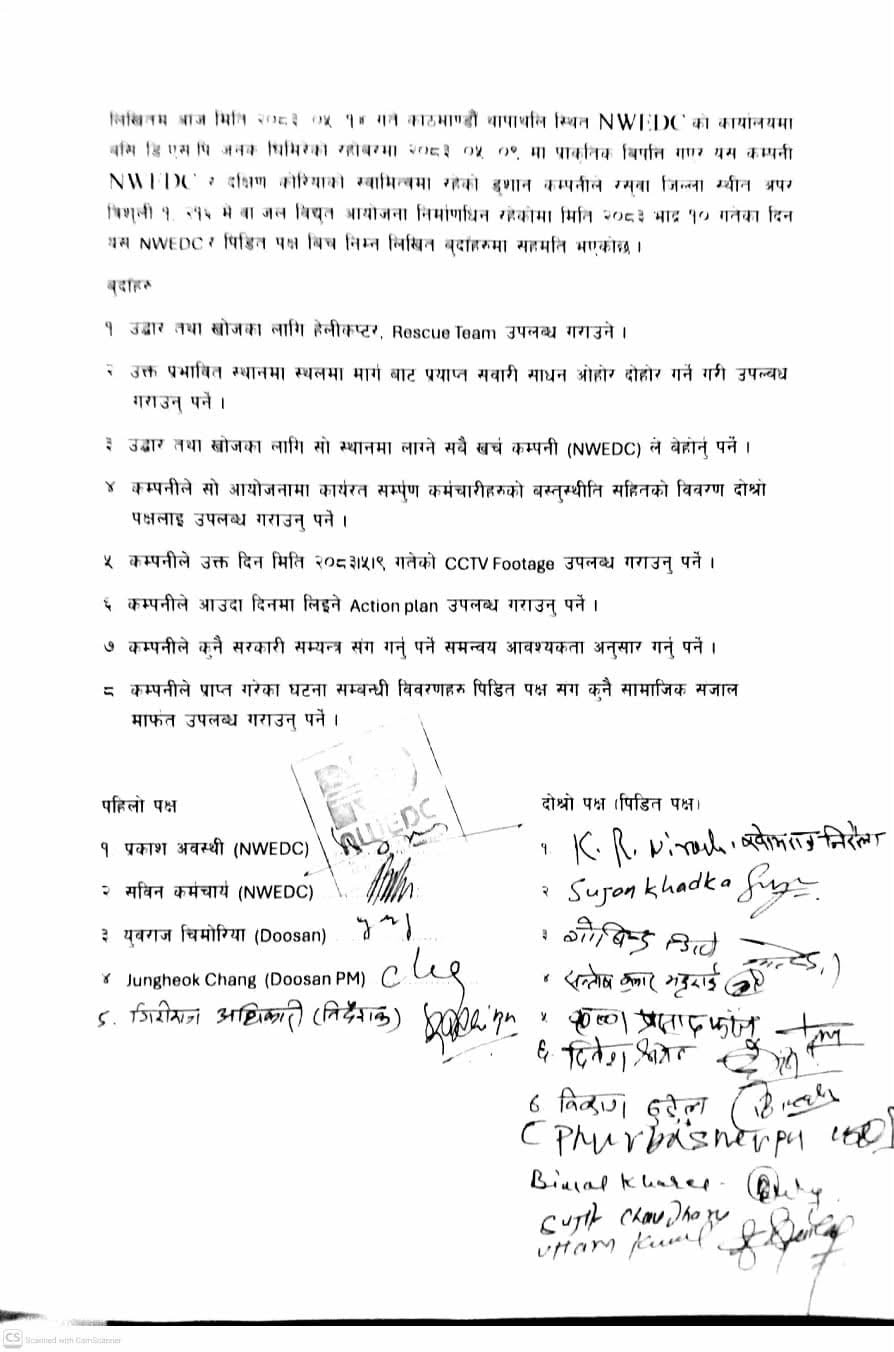 लिखितम आज मिति २०८३ ०५ १४ गते काठमाण्डौ थापाथलि स्थित NWEDC को कार्यालयमा
बसि डि एस पि जनक घिमिरेको रहोबरमा २०८३ ०५ ०९. मा प्राकृतिक बिपत्ति गएर यस कम्पनी
NWEDC र दक्षिण कोरियाको स्वामित्वमा रहेको डुशान कम्पनीले रसुवा जिल्ला स्थीत अपर
त्रिशुली १. २१६ मे वा जल विद्युत आयोजना निर्माणधिन रहेकोमा मिति २०८३ भाद्र १० गतेका दिन
यस NWEDC र पिडित पक्ष बिच निम्न लिखित बुदाहरुमा सहमति भएकोछ ।
बुदाहरु
१ उद्धार तथा खोजका लागि हेलीकप्टर, Rescue Team उपलब्ध गराउने ।
२ उक्त प्रभावित स्थानमा स्थलमा मार्ग बाट प्रयाप्त सवारी साधन ओहोर दोहोर गर्ने गरी उपल्वध
गराउनु पर्ने ।
३ उद्धार तथा खोजका लागि सो स्थानमा लाग्ने सबै खर्च कम्पनी (NWEDC) ले बेहोर्नु पर्ने ।
४ कम्पनीले सो आयोजनामा कार्यरत सम्पुर्ण कर्मचारीहरुको बस्तुस्थीति सहितको विवरण दोश्रो
पक्षलाइ उपलब्ध गराउनु पर्ने ।
५ कम्पनीले उक्त दिन मिति २०८३।५।९ गतेको CCTV Footage उपलब्ध गराउनु पर्ने ।
६ कम्पनीले आउदा दिनमा लिइने Action plan उपलब्ध गराउनु पर्ने ।
७ कम्पनीले कुनै सरकारी सम्यन्त्र संग गर्नु पर्ने समन्वय आवश्यकता अनुसार गर्नु पर्ने ।
८ कम्पनीले प्राप्त गरेका घटना सम्बन्धी विवरणहरु पिडित पक्ष संग कुनै सामाजिक संजाल
मार्फत उपलब्ध गराउनु पर्ने ।
NWEDC
पहिलो पक्ष
१ प्रकाश अवस्थी (NWEDC)
२ सविन कर्मचार्य (NWEDC)
३ युवराज चिमोरिया (Doosan)
४ Jungheok Chang (Doosan PM)
५. गिरीराज अधिकारी (निर्देशक)
दोश्रो पक्ष (पिडित पक्ष)
१ K. R. Niraula
२ Sujan Khadka
३ गोबिन्द
४ सन्तोष कुमार भट्टराई
५ कृष्ण प्रसाद
६ दिनेश
७ विकाश
Phurba Sherpa
Bimal
Sujit Chaudhary
Uttam
CS Scanned with CamScanner